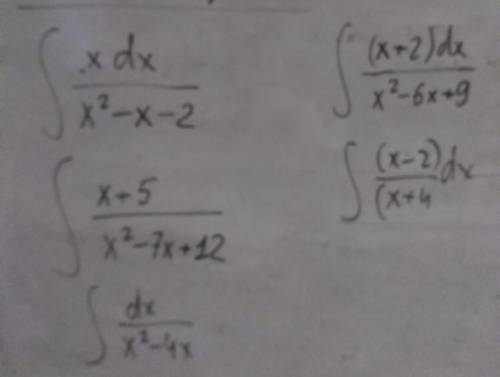 ∫ x dx / x²-x-2
∫ (x+2)dx / x²-6x+9
∫ x+5 / x²-7x+12
∫ (x-2) / (x+4 dx
∫ dx / x²-4x